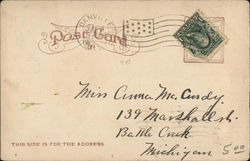 DANVILLE
Post Card
Miss Anna McCurdy
139 Marshall St.
Battle Creek
Michigan
5.00
THIS SIDE IS FOR THE ADDRESS.